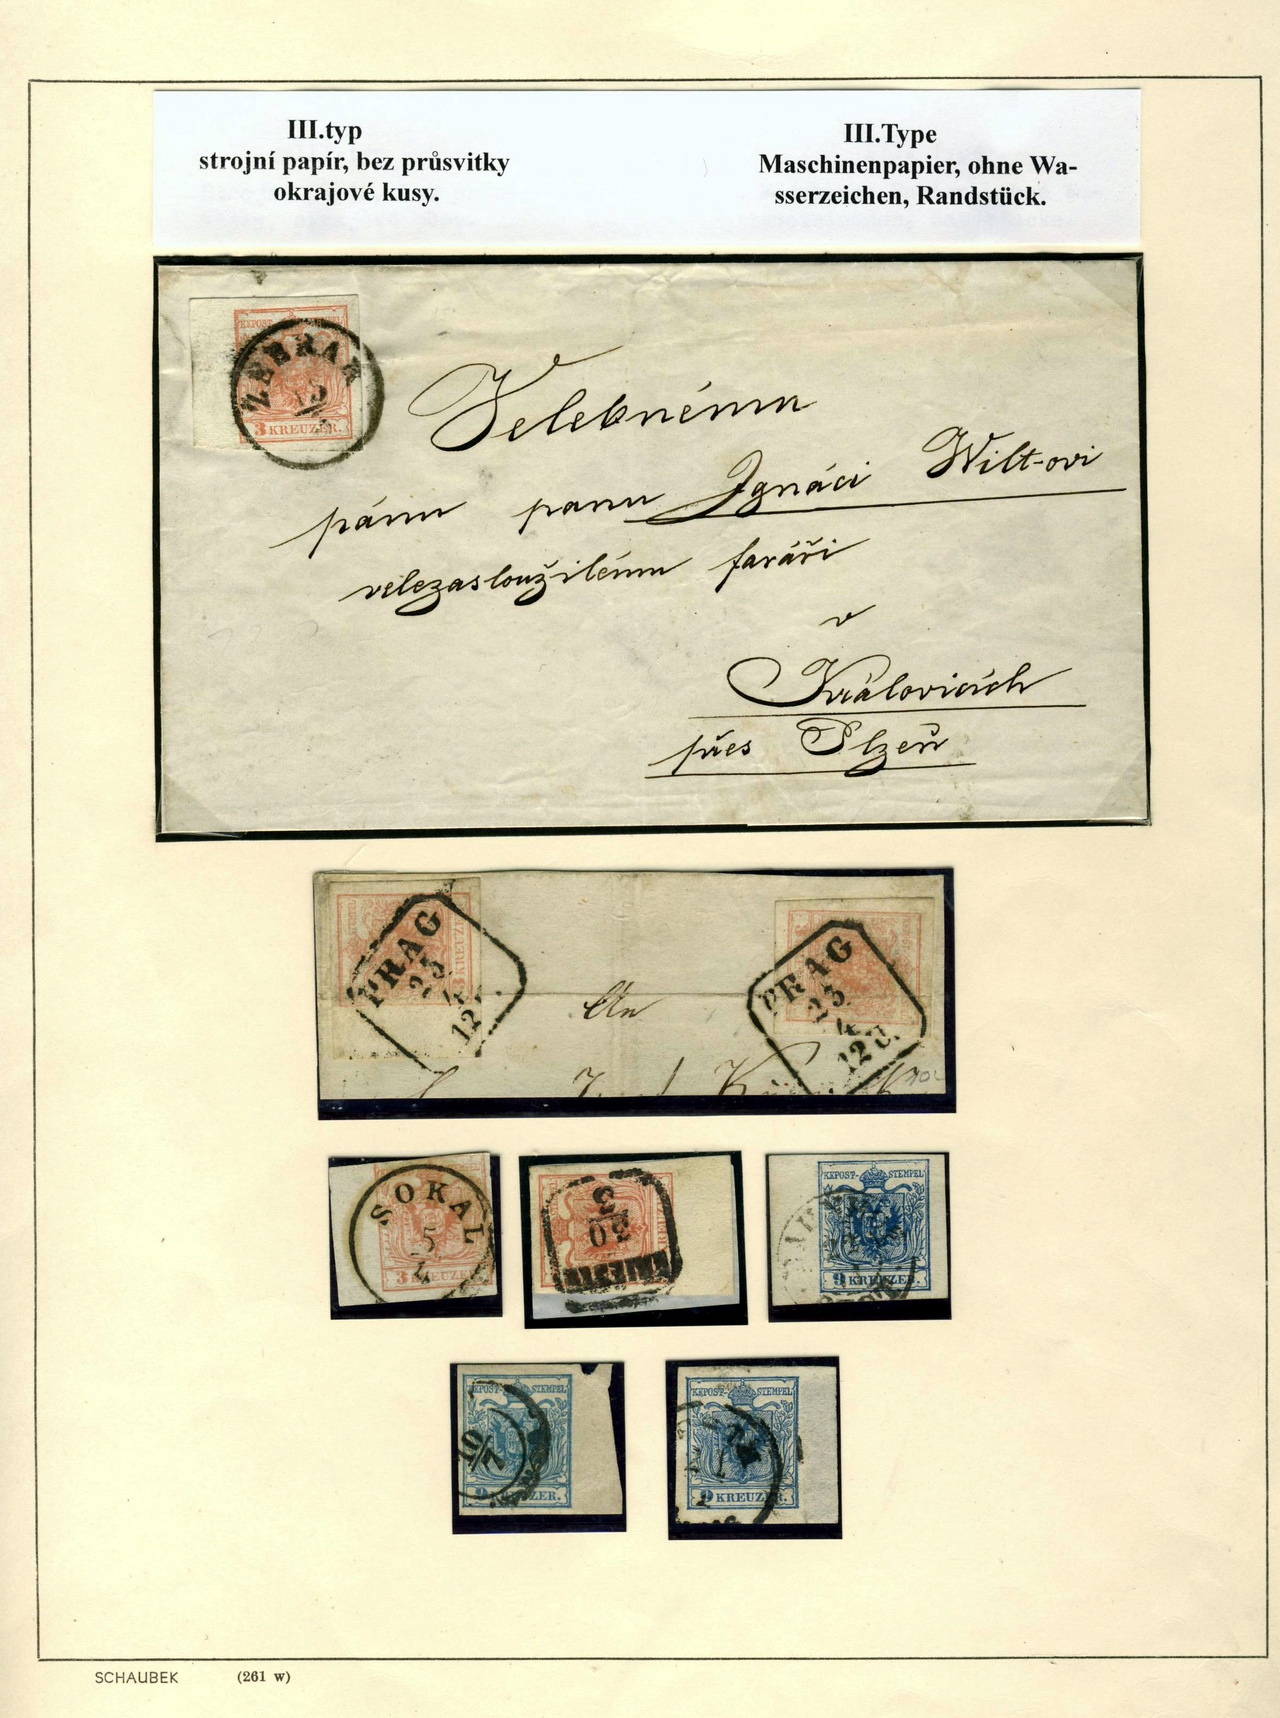 III.typ
strojní papír, bez průsvitky
okrajové kusy.
III.Type
Maschinenpapier, ohne Wa-
sserzeichen, Randstück.
KKPOST-
ZEBRAK
3 KREUZER.
Velebnému
pánu panu Ignáci Wilt-ovi
velezasloužilému faráři
v
Královicích
přes Plzeň
KREUZER
PRAG
23
4
12
An
PRAG
23
4
12 U.
SOKAL
5
4
3 KREUZER.
3
30
TRIEST
KKPOST-STEMPEL
9 KREUZER.
KKPOST-STEMPEL
10/7
9 KREUZER.
KKPOST-STEMPEL
9 KREUZER.
SCHAUBEK (261 w)